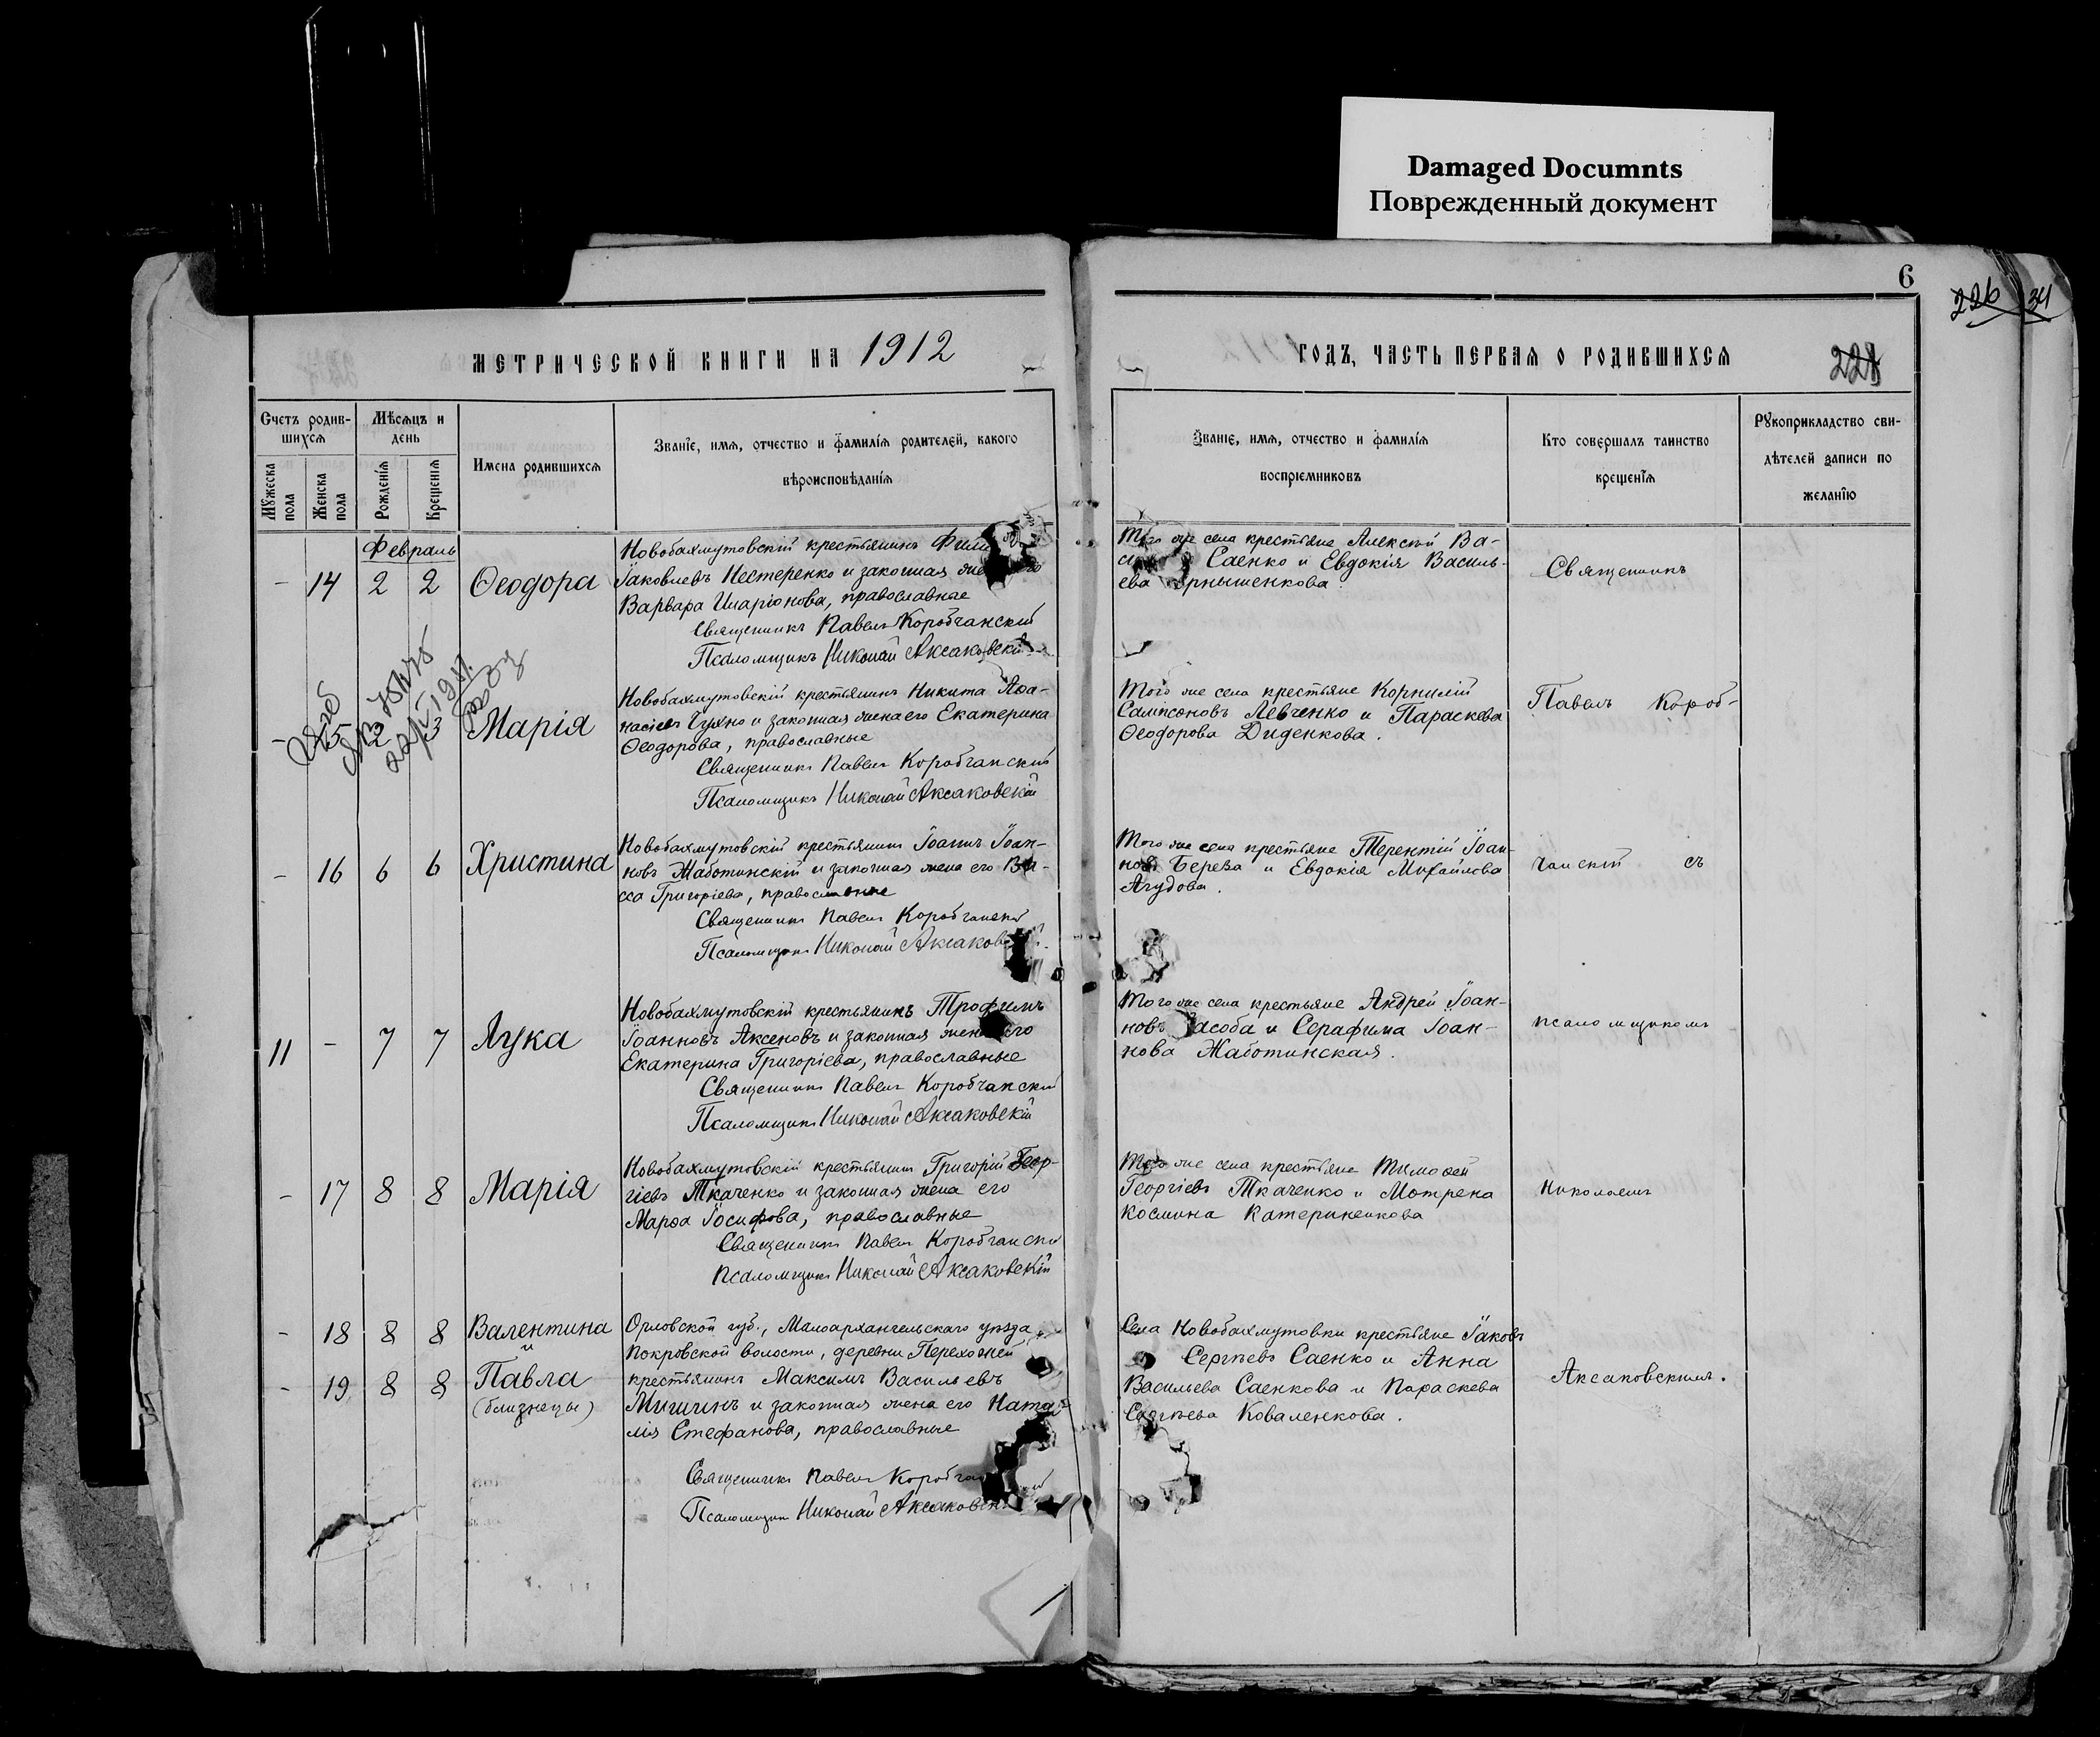 Damaged Documnts
Поврежденный документ
6
226 34
МЕТРИЧЕСКОЙ КНИГИ НА 1912
ГОДЪ, ЧАСТЬ ПЕРВАЯ О РОДИВШИХСЯ
Счетъ родив-
шихся
Мѣсяцъ и
день
Мужеска пола
Женска пола
Рожденія
Крещенія
Имена родившихся
Званіе, имя, отчество и фамилія родителей, какого
вѣроисповѣданія
Званіе, имя, отчество и фамилія
воспріемниковъ
Кто совершалъ таинство
крещенія
Рукоприкладство сви-
дѣтелей записи по
желанію
Февраль
- 14 2 2 Ѳеодора
Новобахмутовскій крестьянинъ
Іаковлевъ Нестеренко и законная
Варвара Иларіонова, православные
Священникъ Павелъ Коробчанскій
Псаломщикъ Николай Аксаковскій
Того же села крестьяне Алексѣй Ва-
Саенко и Евдокія Василь-
ева
Священникъ
- 15 2 3 Марія
Новобахмутовскій крестьянинъ Никита Аѳа-
насіевъ Чухно и законная жена его Екатерина
Ѳеодорова, православные
Священникъ Павелъ Коробчанскій
Псаломщикъ Николай Аксаковскій
Того же села крестьяне Корнилій
Сампсоновъ Левченко и Параскева
Ѳеодорова Диденкова.
Павелъ Короб-
- 16 6 6 Христина
Новобахмутовскій крестьянинъ Іоаннъ Іоан-
новъ Жаботинскій и законная жена его Ва-
сса Григоріева, православные
Священникъ Павелъ Коробчанскій
Псаломщикъ Николай
Того же села крестьяне Терентій Іоан-
новъ Береза и Евдокія Михайлова
Агудова.
чанскій съ
11 - 7 7 Лука
Новобахмутовскій крестьянинъ Трофимъ
Іоанновъ Аксеновъ и законная жена его
Екатерина Григоріева, православные
Священникъ Павелъ Коробчанскій
Псаломщикъ Николай Аксаковскій
Того же села крестьяне Андрей Іоан-
новъ и Серафима Іоан-
нова Жаботинская.
псаломщикомъ
- 17 8 8 Марія
Новобахмутовскій крестьянинъ Григорій Геор-
гіевъ Ткаченко и законная жена его
Марѳа Іосифова, православные
Священникъ Павелъ Коробчанскій
Псаломщикъ Николай Аксаковскій
Того же села крестьяне Тимоѳей
Георгіевъ Ткаченко и Мотрена
Космина Катериненкова
Николаемъ
- 18 8 8 Валентина
и
- 19 8 8 Павла
(близнецы)
Орловской губ., Малоархангельскаго уѣзда,
Покровской волости, деревни Переходней
крестьянинъ Максимъ Васильевъ
Мишинъ и законная жена его Ната-
лія Стефанова, православные
Священникъ Павелъ
Псаломщикъ Николай
Села Новобахмутовки крестьяне Іаковъ
Сергѣевъ Саенко и Анна
Васильева Саенкова и Параскева
Сергѣева Коваленкова.
Аксаковскимъ.